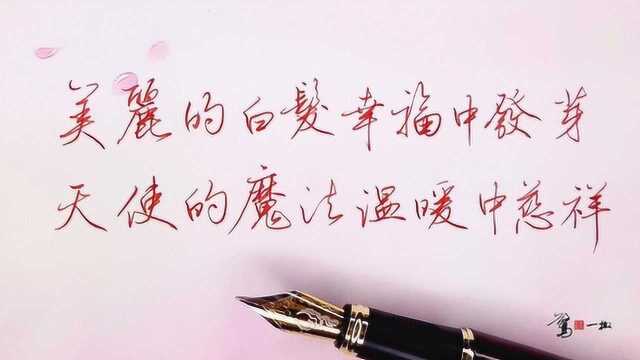 美麗的白髮幸福中發芽
天使的魔法温暖中慈祥